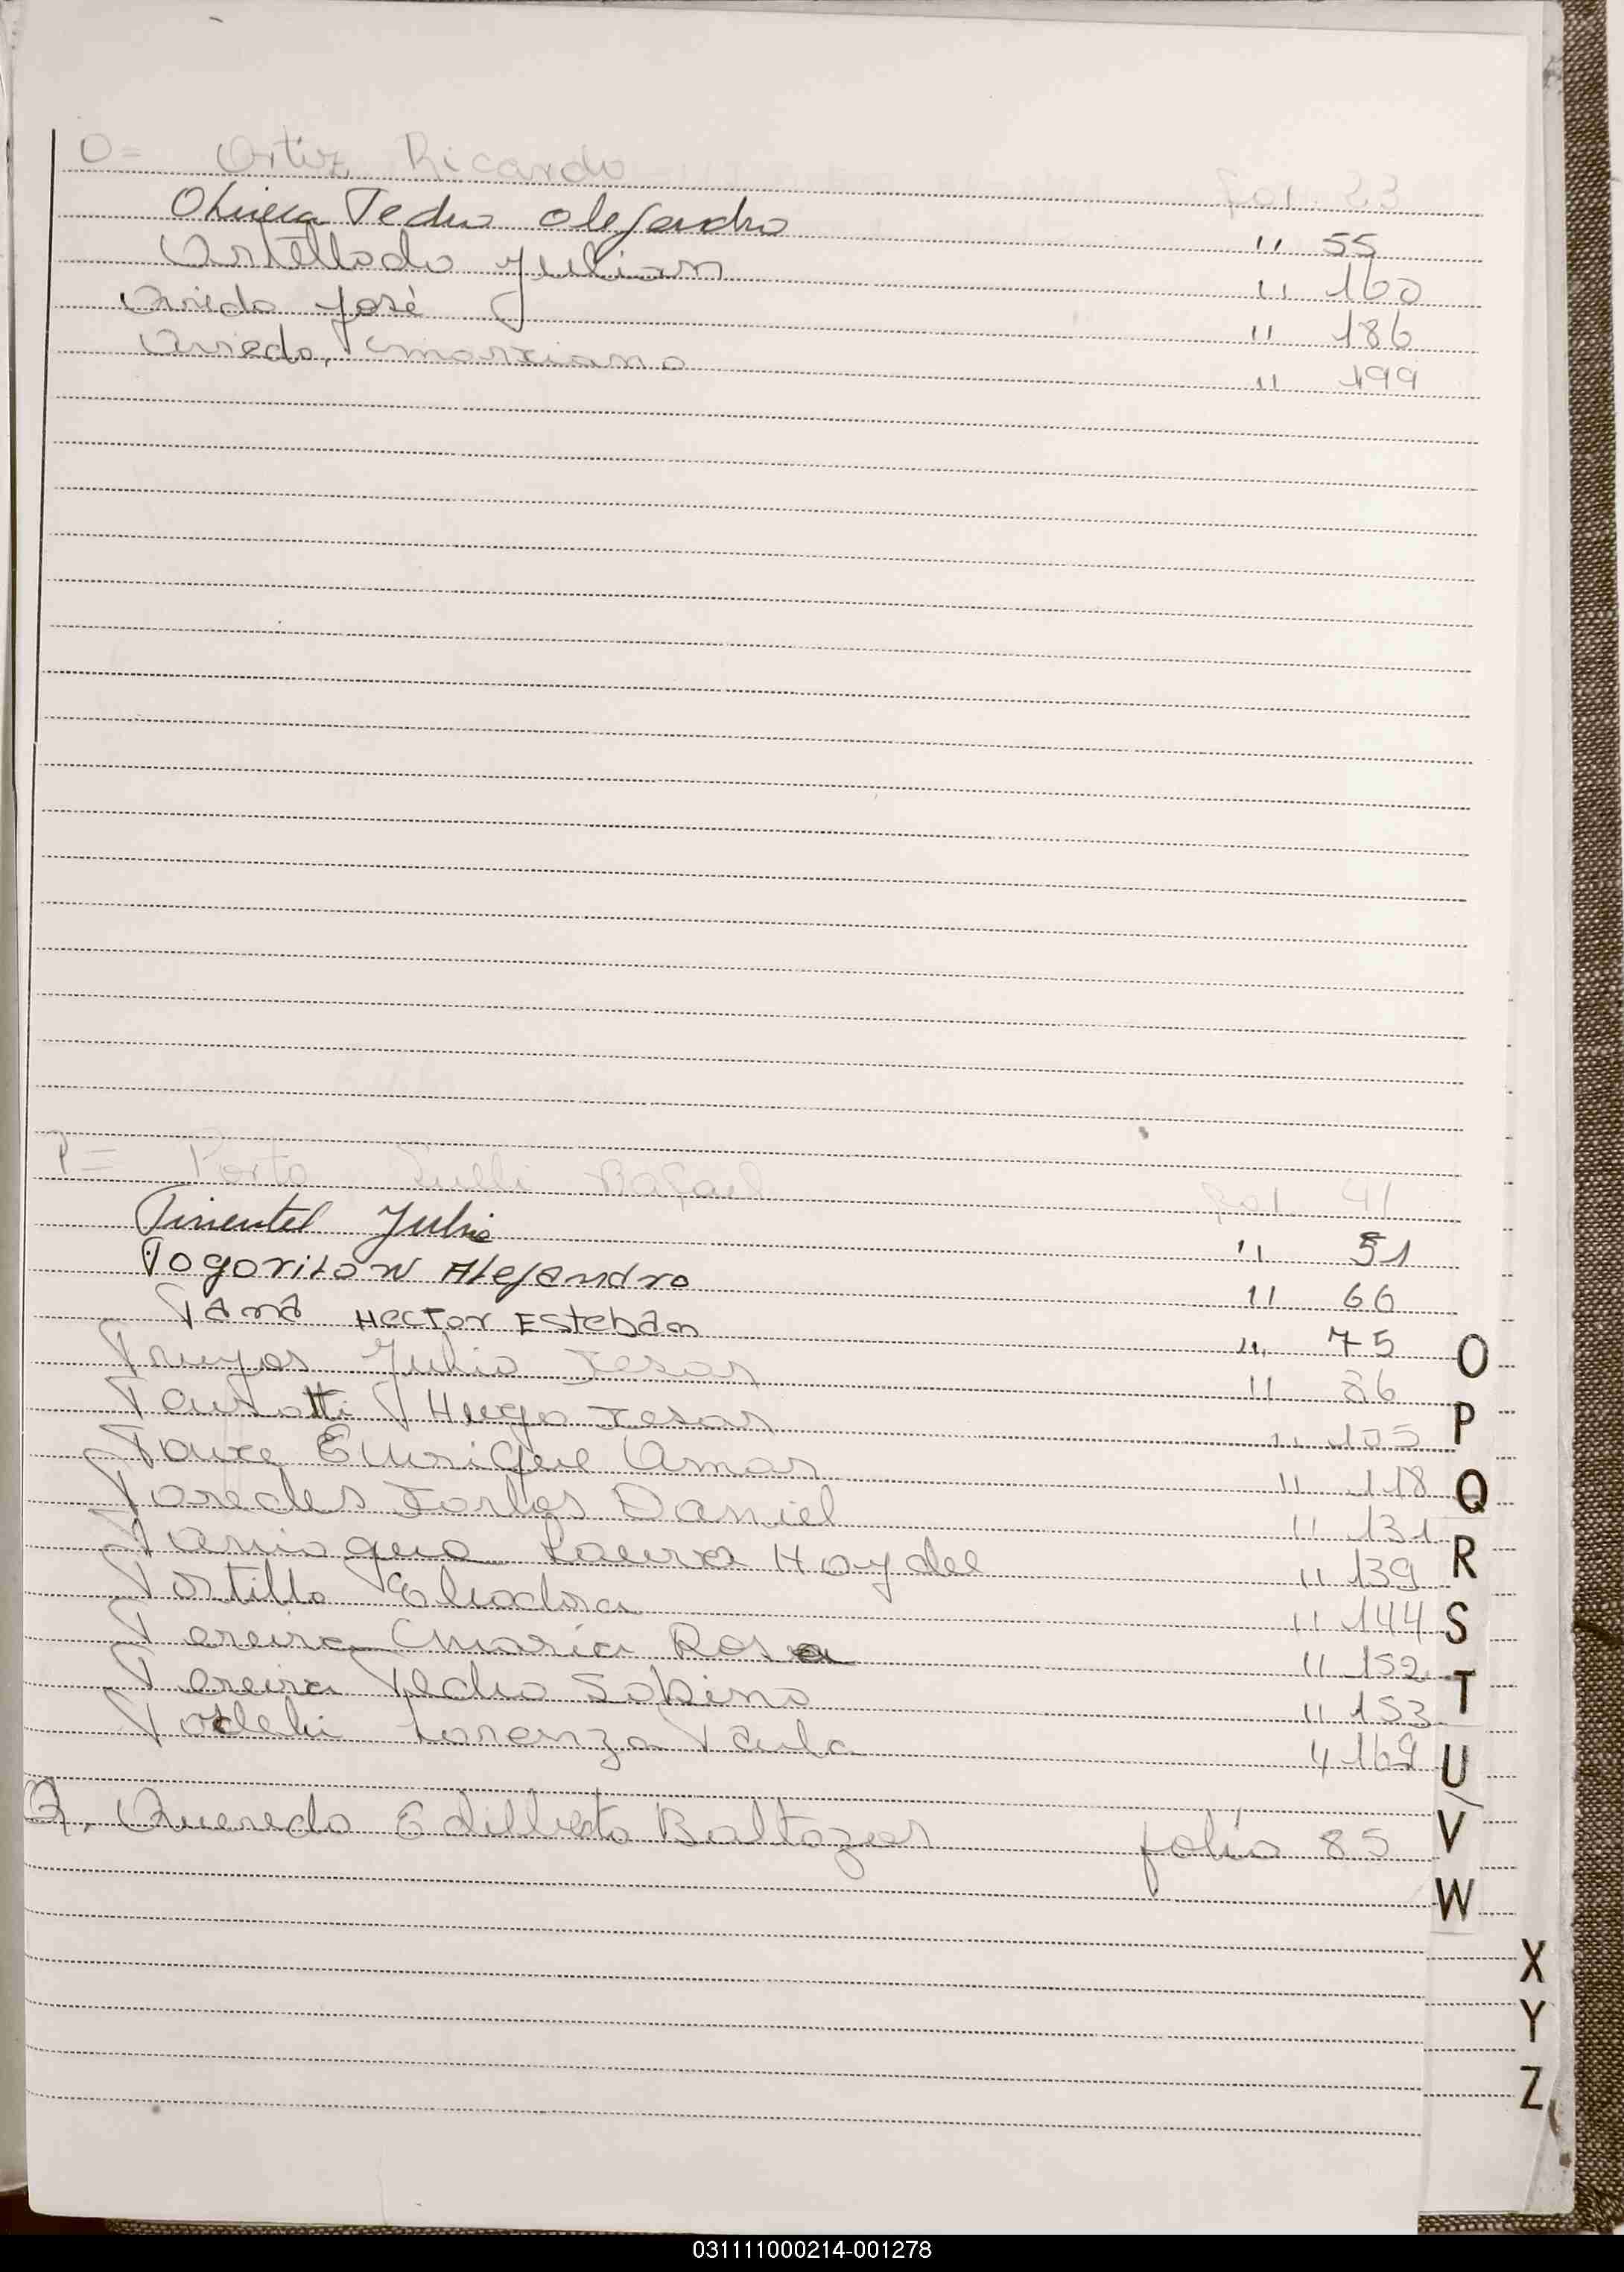 O= Ortiz Ricardo fol. 23
Pedro Alejandro " 55
Orstellado Julian " 160
Oviedo José " 186
Oviedo, Marciano " 199
P= Porto Rafael fol. 41
Pimentel Julio " 51
Pogorilow Alejandro " 66
Pana Hector Esteban " 75
Julio Cesar " 86
Hugo Cesar " 105
Enrique Omar " 118
Paredes Carlos Daniel " 131
Paniagua Laura Haydee " 139
Portillo Eliodora " 144
Pereira Maria Rosa " 152
Pereira Pedro Sabino " 153
Lorenza Paula " 169
Q. Quevedo Edilberto Baltazar folio 85
O
P
Q
R
S
T
U
V
W
X
Y
Z
031111000214-001278